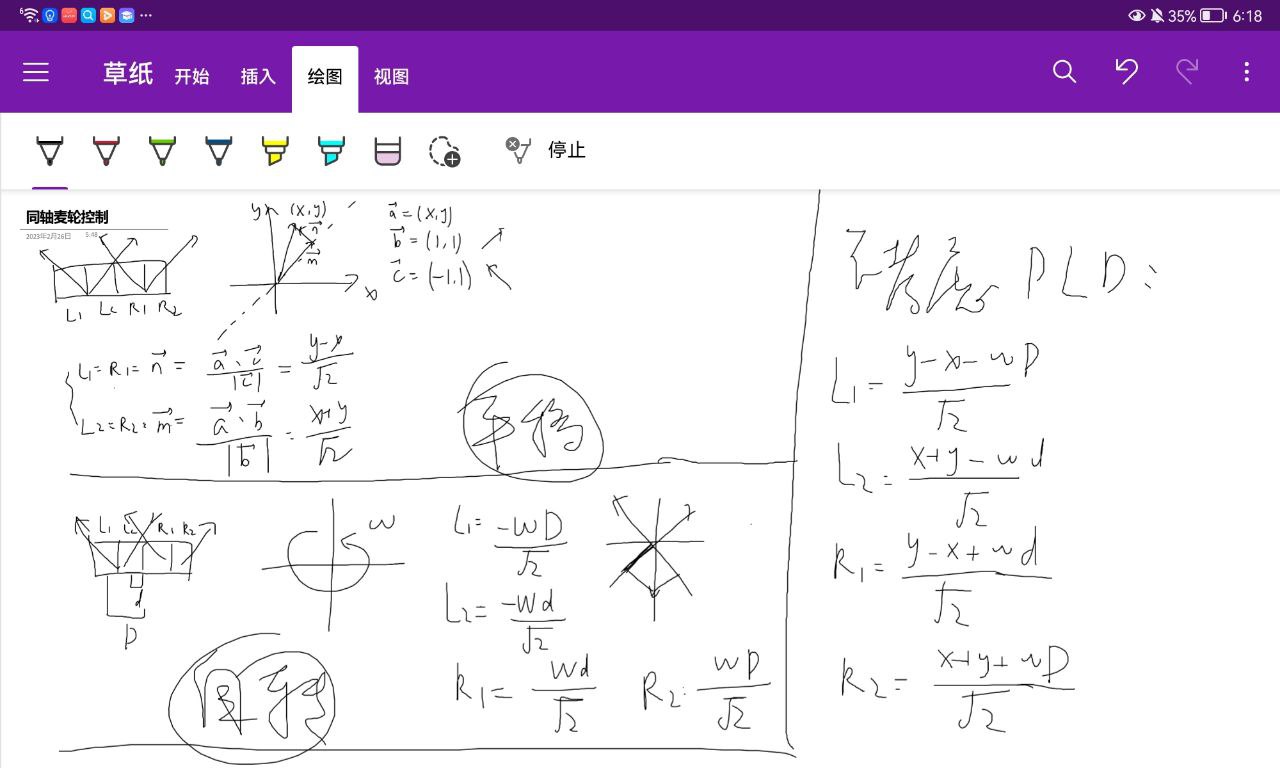 35% 6:18
草纸 开始 插入 绘图 视图
停止
同轴麦轮控制
2023年2月26日 5:48
L1 L2 R1 R2
y (x,y)
n
m
x
a = (x,y)
b = (1,1)
c = (-1,1)
L1=R1=n= a·c/|c| = y-x/√2
L2=R2=m= a·b/|b| = x+y/√2
平移
L1 L2 R1 R2
d
D
w
L1= -wD/√2
L2= -wd/√2
R1= wd/√2 R2= wD/√2
自转
不考虑 PLD:
L1= y-x-wD/√2
L2= x+y-wd/√2
R1= y-x+wd/√2
R2= x+y+wD/√2